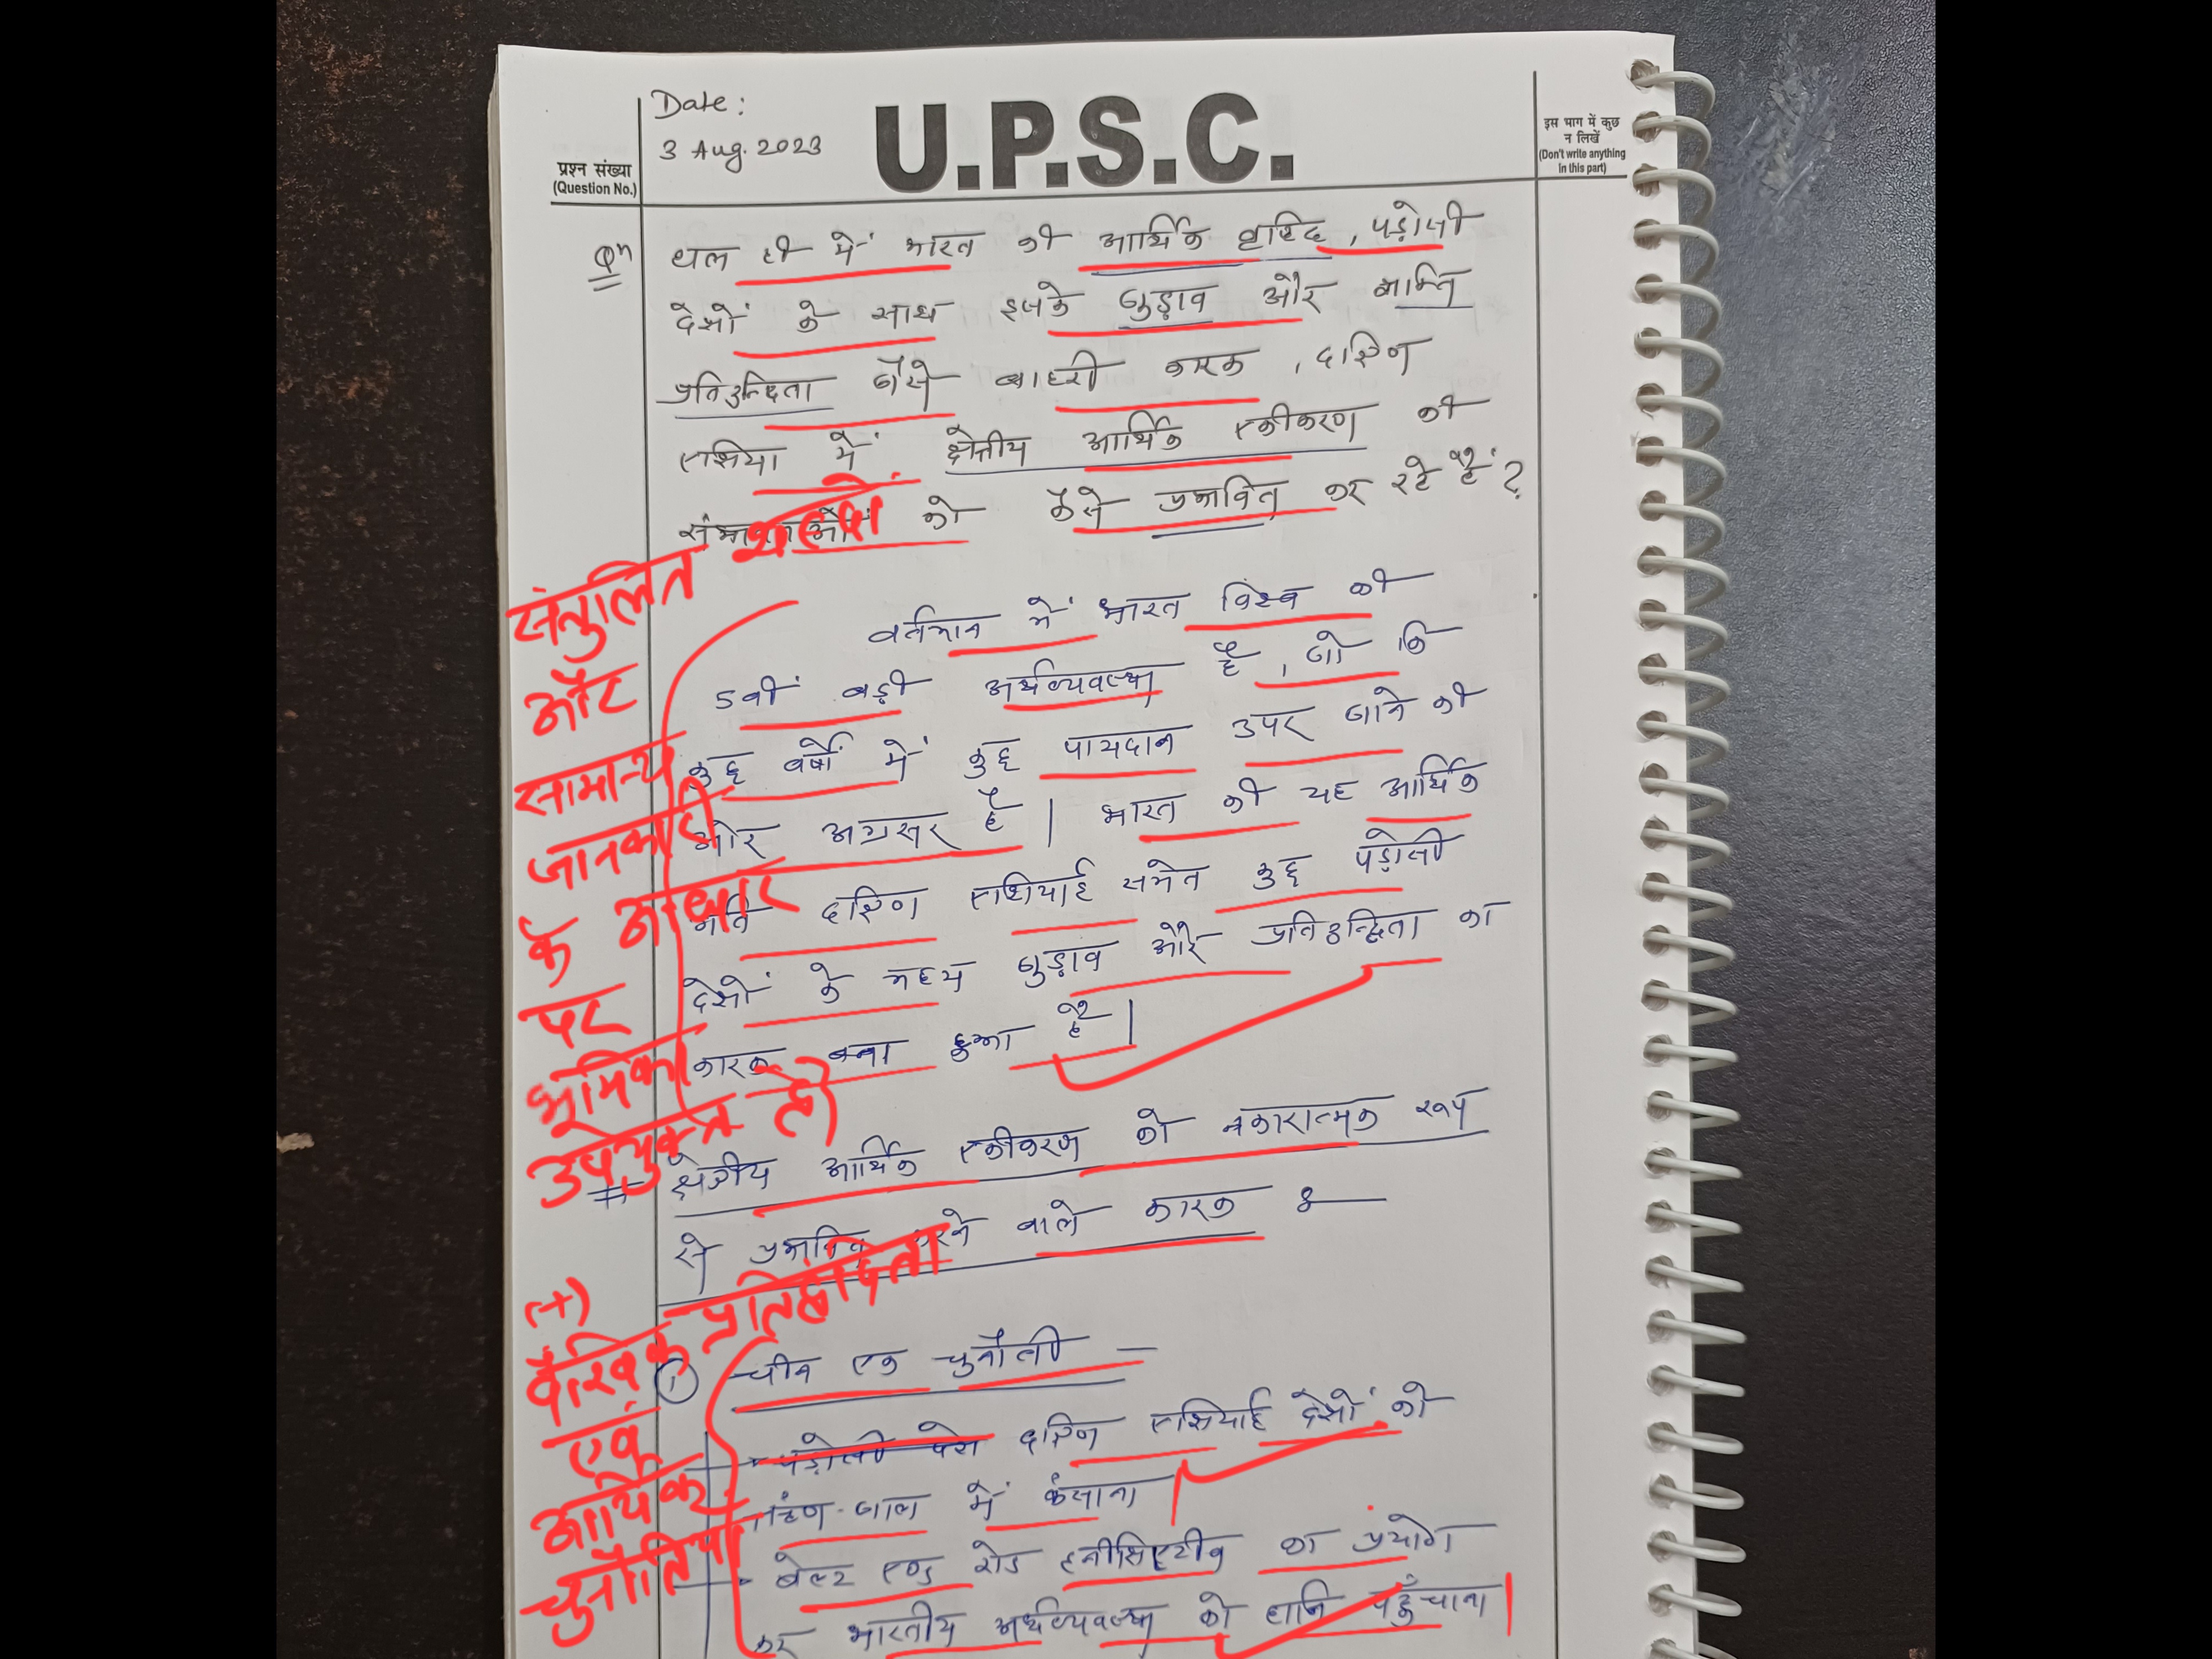 Date:
3 Aug. 2023
U.P.S.C.
प्रश्न संख्या
(Question No.)
इस भाग में कुछ
न लिखें
(Don't write anything
in this part)
Qn
हाल ही में भारत की आर्थिक वृद्धि, पड़ोसी
देशों के साथ इसके जुड़ाव और शक्ति
प्रतिद्वन्दिता जैसे बाहरी कारक, दक्षिण
एशिया में क्षेत्रीय आर्थिक एकीकरण की
संभावनाओं को कैसे प्रभावित कर रहे हैं?
वर्तमान में भारत विश्व की
5वीं बड़ी अर्थव्यवस्था है, जो कि
कुछ वर्षों में कुछ पायदान उपर जाने की
ओर अग्रसर है। भारत की यह आर्थिक
गति दक्षिण एशियाई समेत कुछ पड़ोसी
देशों के मध्य जुड़ाव और प्रतिद्वन्द्विता का
कारक बना हुआ है।
संतुलित
और
सामान्य
जानकारी
के आधार
पर
भूमिका
उपयुक्त है।
# क्षेत्रीय आर्थिक एकीकरण को नकारात्मक रूप
से प्रभावित करने वाले कारक :—
(+)
वैश्विक प्रतिद्वंदिता
एवं
आर्थिक
चुनौतियां
① चीन एक चुनौती —
पड़ोसी देश दक्षिण एशियाई देशों को
ऋण-जाल में फंसाना
बेल्ट एण्ड रोड इनीसिएटीव का प्रयोग
कर भारतीय अर्थव्यवस्था को हानि पहुँचाना